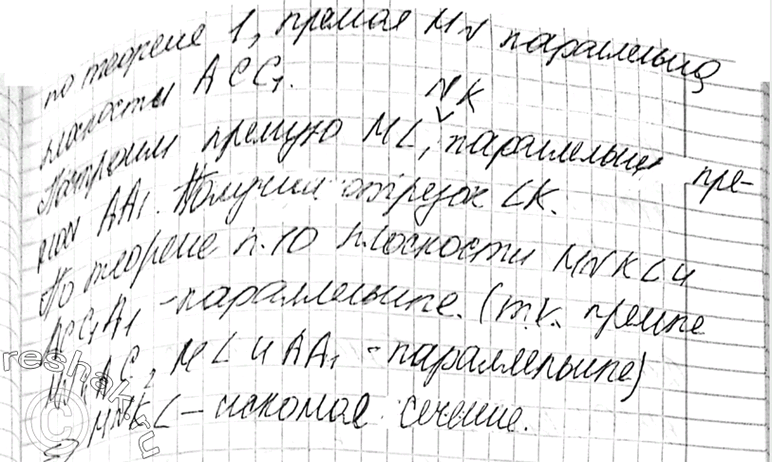 по теореме 1, прямая MN параллельна
плоскости ACC₁.
NK
Построим прямую ML, параллельные пря-
мой AA₁. Получили отрезок LK.
По теореме п.10 плоскости MNKL и
ACC₁A₁ - параллельные. (т.к. прямые
MN и AC, ML и AA₁ - параллельные)
MNKL - искомое сечение.
reshak.ru